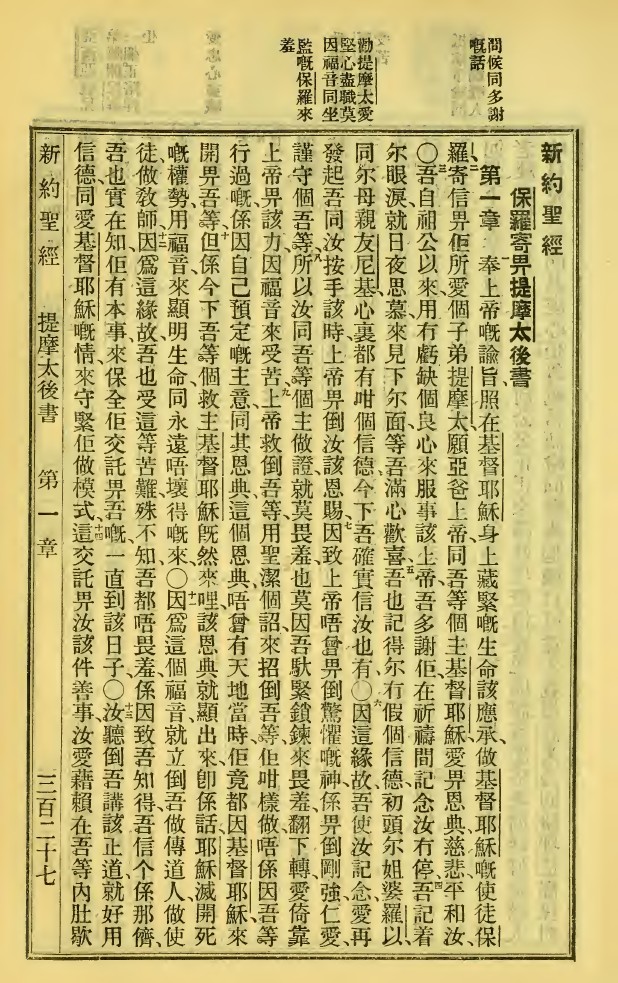 問候同多謝
嘅話
勸提摩太愛
堅心盡職莫
因福音同坐
監嘅保羅來
羞
新約聖經
保羅寄畀提摩太後書
第一章 一奉上帝嘅諭旨、照在基督耶穌身上藏緊嘅生命該應承、做基督耶穌嘅使徒保
羅、二寄信畀佢所愛個子弟提摩太、願亞爸上帝同吾等個主基督耶穌、愛畀恩典慈悲平和汝、
〇三吾自祖公以來、用冇虧缺個良心來服事該上帝、吾多謝佢、在祈禱間記念汝冇停、四吾記着
尔眼淚、就日夜思慕來見下尔面、等吾滿心歡喜、五吾也記得尔冇假個信德、初頭尔姐婆羅以、
同尔母親友尼基心裏都有咁個信德、今下吾確實信汝也有〇六因這緣故、吾使汝記念、愛再
發起吾同汝按手該時、上帝畀倒汝該恩賜、七因致上帝唔曾畀倒驚懼嘅神、係畀倒剛強、仁愛、
謹守個吾等、八所以汝同吾等個主做證、就莫畏羞、也莫因吾馱緊鎖鍊來畏羞、翻下轉愛倚靠
上帝畀該力、因福音來受苦、九上帝救倒吾等、用聖潔個詔來招倒吾等、佢咁樣做、唔係因吾等
行過嘅、係因自己預定嘅主意、同其恩典、這個恩典、唔曾有天地當時、佢竟都因基督耶穌來
開畀吾等、十但係今下吾等個救主基督耶穌既然來哩、該恩典就顯出來、卽係話耶穌滅開死
嘅權勢、用福音來顯明生命同永遠唔壞得嘅來〇十一因爲這個福音、就立倒吾做傳道人、做使
徒、做教師、十二因爲這緣故、吾也受這等苦難、殊不知吾都唔畏羞、係因致吾知得吾信个係那儕、
吾也實在知佢有本事來保全佢交託畀吾嘅、一直到該日子〇十三汝聽倒吾講該正道、就好用
信德同愛基督耶穌嘅情來守緊佢做模式、十四這交託畀汝該件善事、汝愛藉賴在吾等內肚歇
新約聖經 提摩太後書 第一章 三百二十七